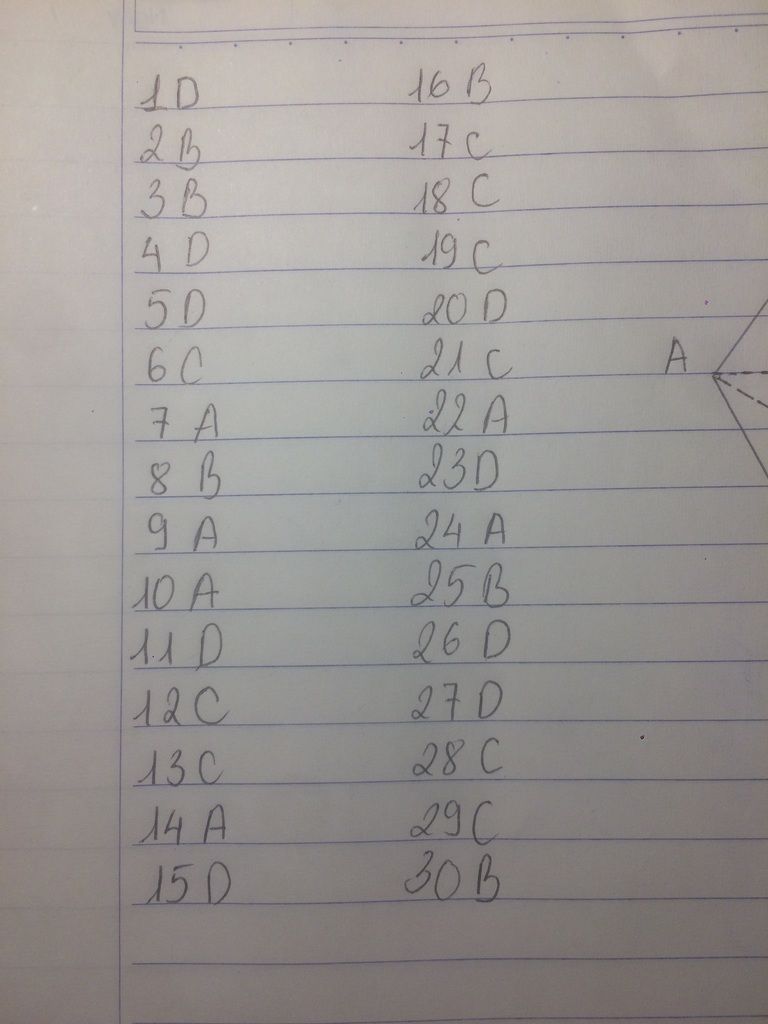 1 D
2 B
3 B
4 D
5 D
6 C
7 A
8 B
9 A
10 A
11 D
12 C
13 C
14 A
15 D
16 B
17 C
18 C
19 C
20 D
21 C
22 A
23 D
24 A
25 B
26 D
27 D
28 C
29 C
30 B
A